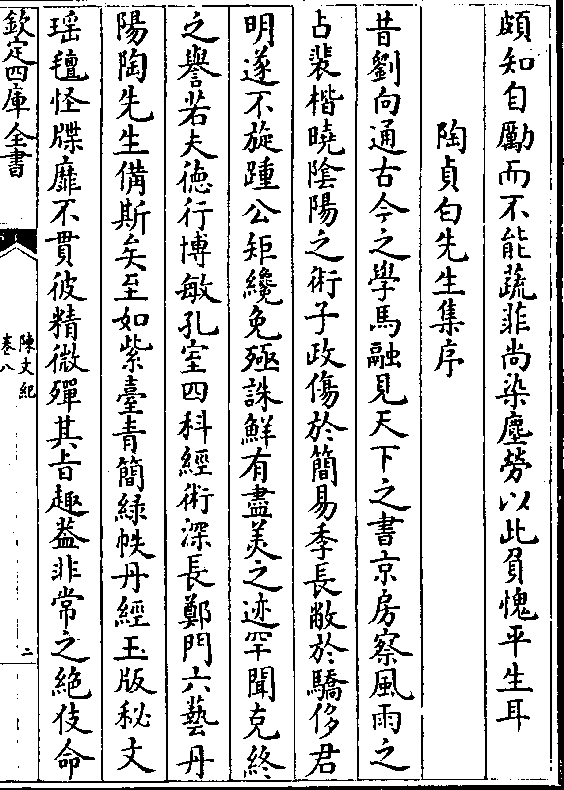 頗知自勵而不能蔬菲尚染塵勞以此負愧平生耳
陶貞白先生集序
昔劉向通古今之學馬融見天下之書京房察風雨之
占裴楷曉陰陽之術子政傷於簡易季長敝於驕侈君
明遂不旋踵公矩纔免殛誅鮮有盡美之迹罕聞克終
之譽若夫徳行博敏孔室四科經術深長鄭門六藝丹
陽陶先生備斯矣至如紫臺青簡緑帙丹經玉版秘文
瑶䡖怪牒靡不貫彼精微殫其旨趣葢非常之絶伎命
欽定四庫全書
陳文紀
卷八
二